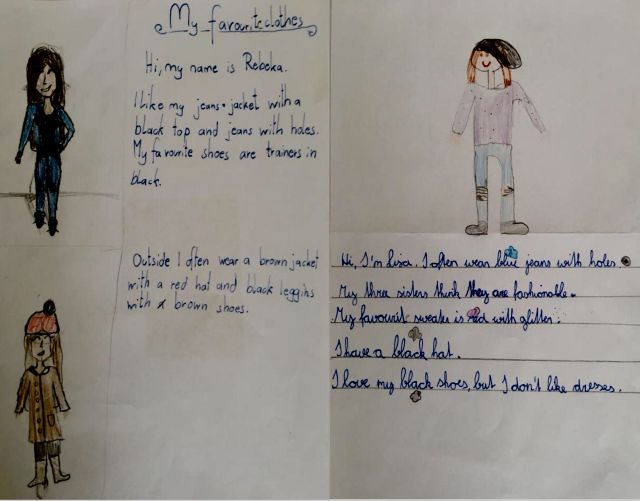 My favourite clothes
Hi, my name is Rebeka.
I like my jeans-jacket with a
black top and jeans with holes.
My favourite shoes are trainers in
black.
Outside I often wear a brown jacket
with a red hat and black leggins
with brown shoes.
Hi, I'm Lisa. I often wear blue jeans with holes.
My three sisters think they are fashionable.
My favourit sweater is red with glitter.
I have a black hat.
I love my black shoes, but I don't like dresses.